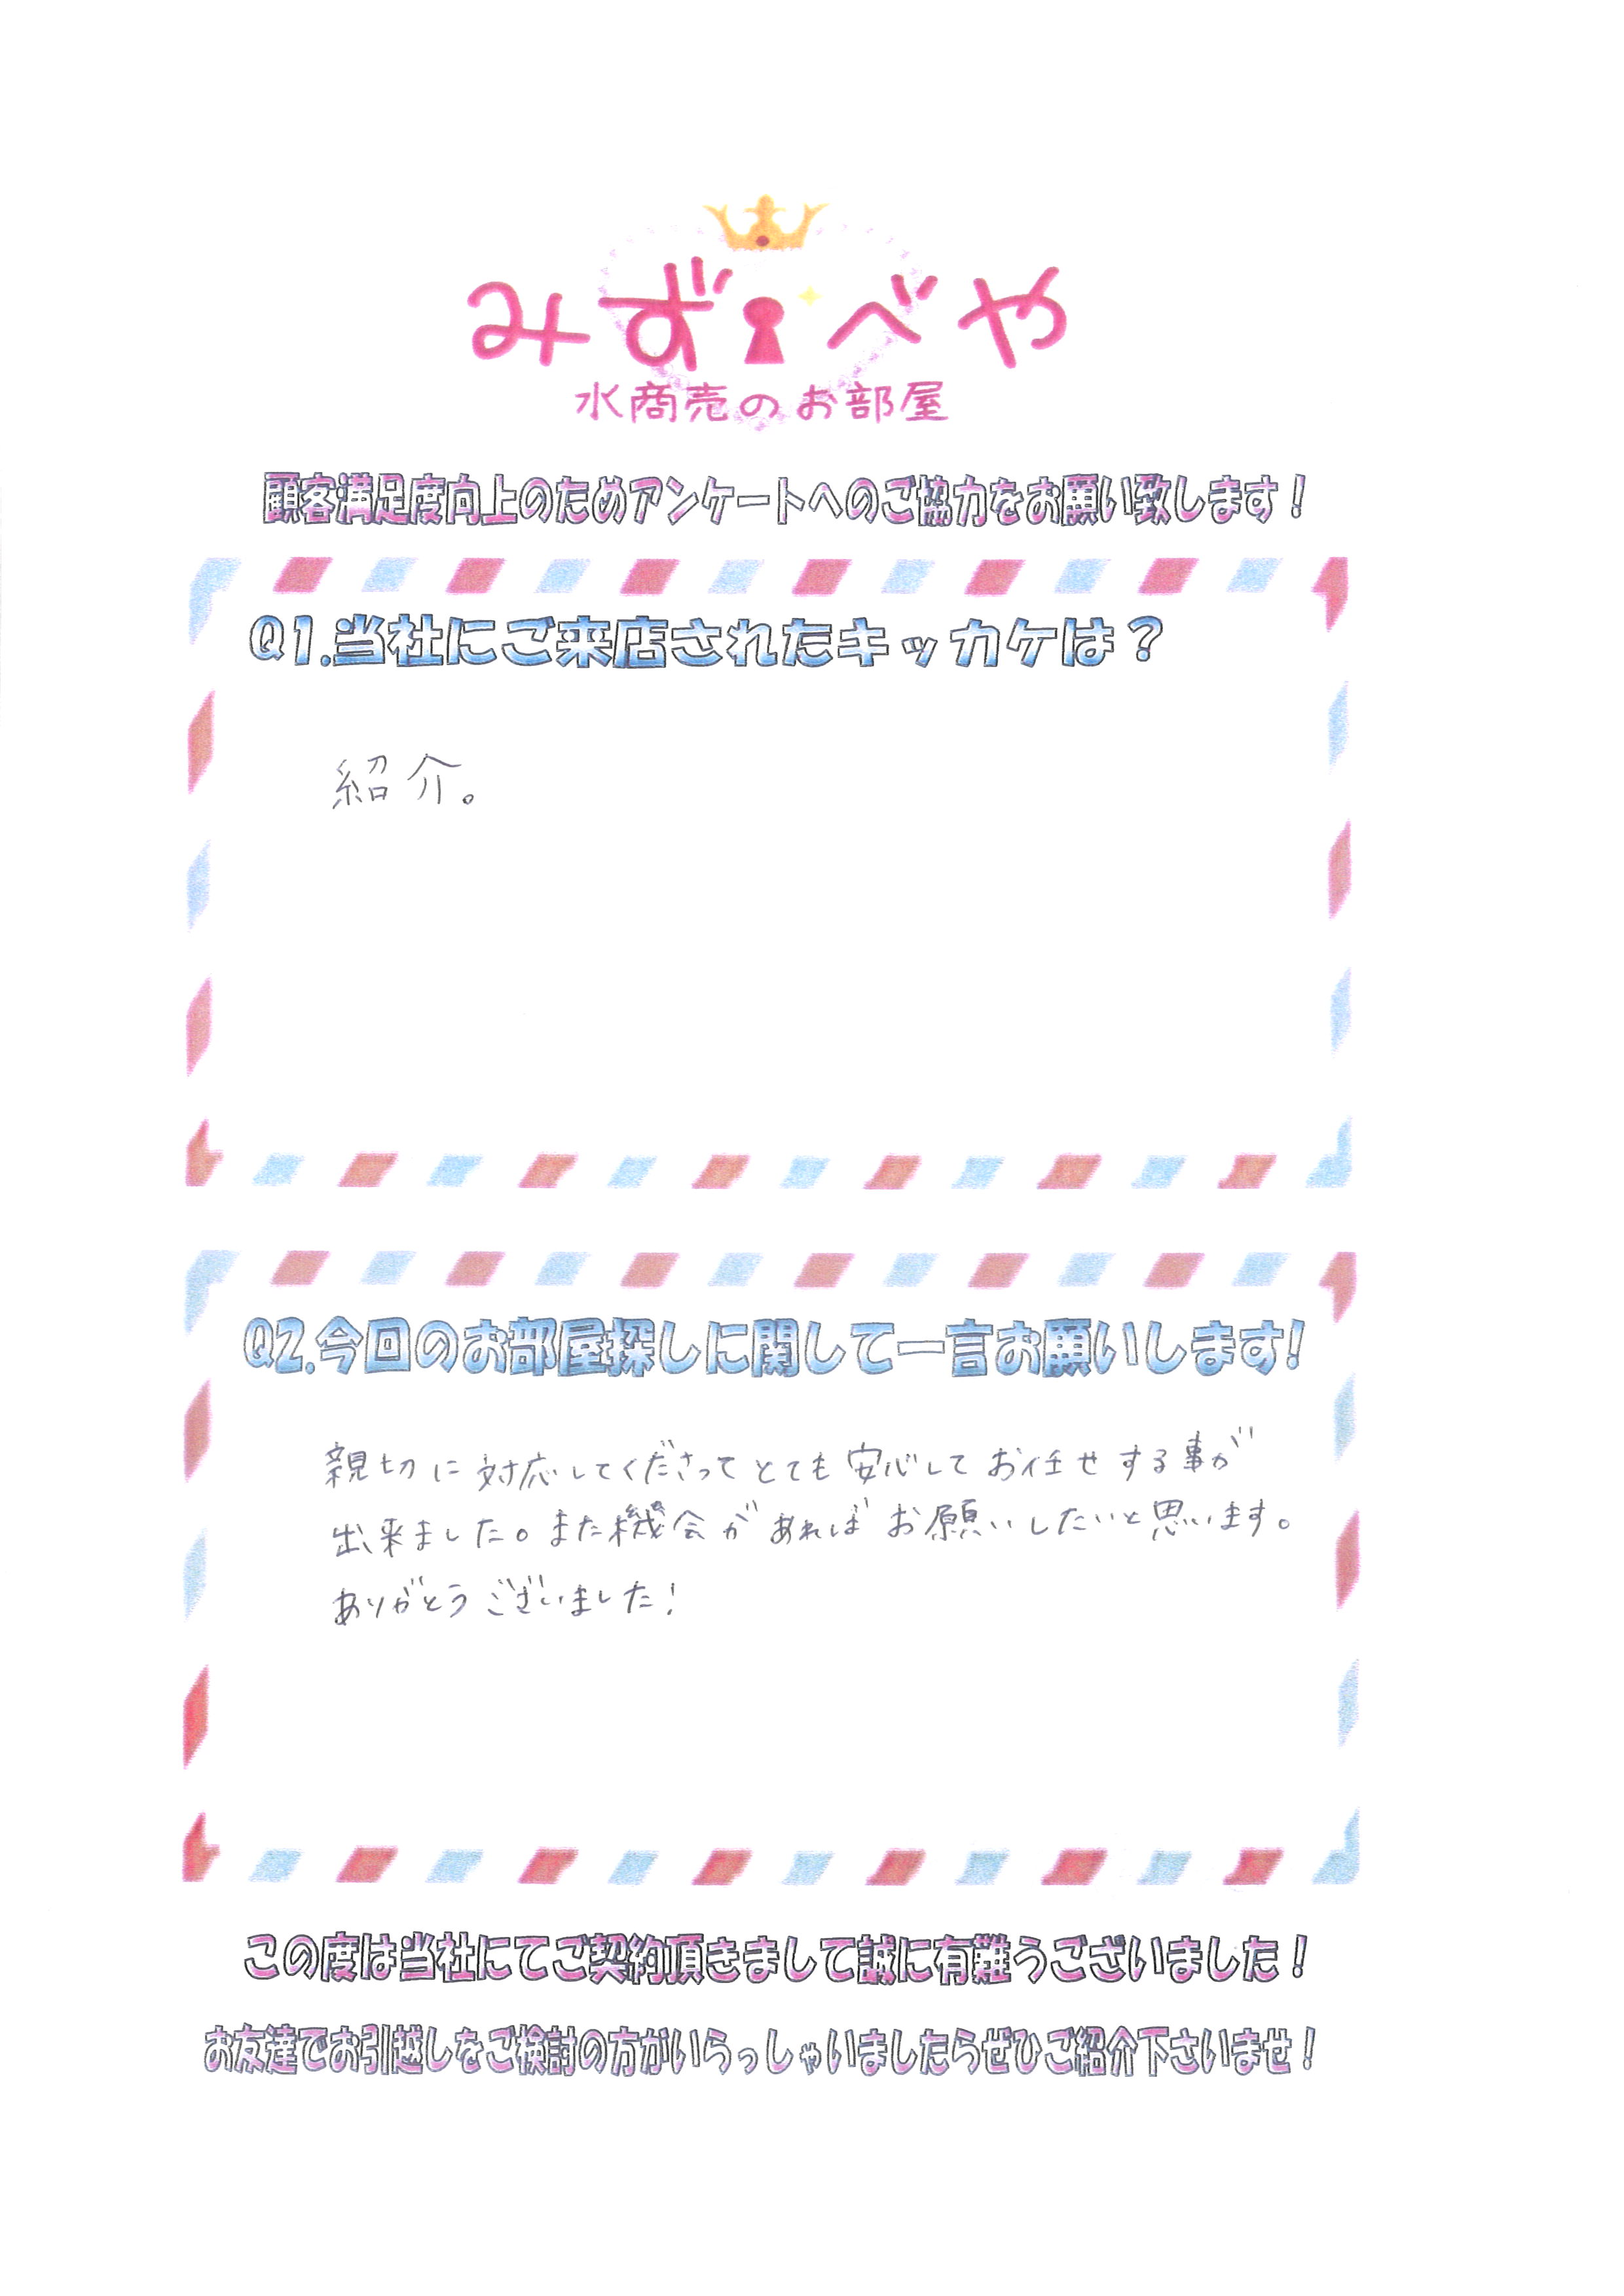 みずべや
水商売のお部屋
顧客満足度向上のためアンケートへのご協力をお願い致します！
Q1.当社にご来店されたキッカケは？
紹介。
Q2.今回のお部屋探しに関して一言お願いします!
親切に対応してくださってとても安心してお任せする事が
出来ました。また機会があればお願いしたいと思います。
ありがとうございました！
この度は当社にてご契約頂きまして誠に有難うございました！
お友達でお引越しをご検討の方がいらっしゃいましたらぜひご紹介下さいませ！